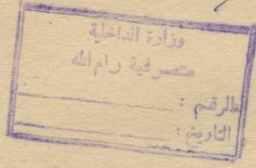 وزارة الداخلية
متصرفية رام الله
الرقم :
التاريخ :